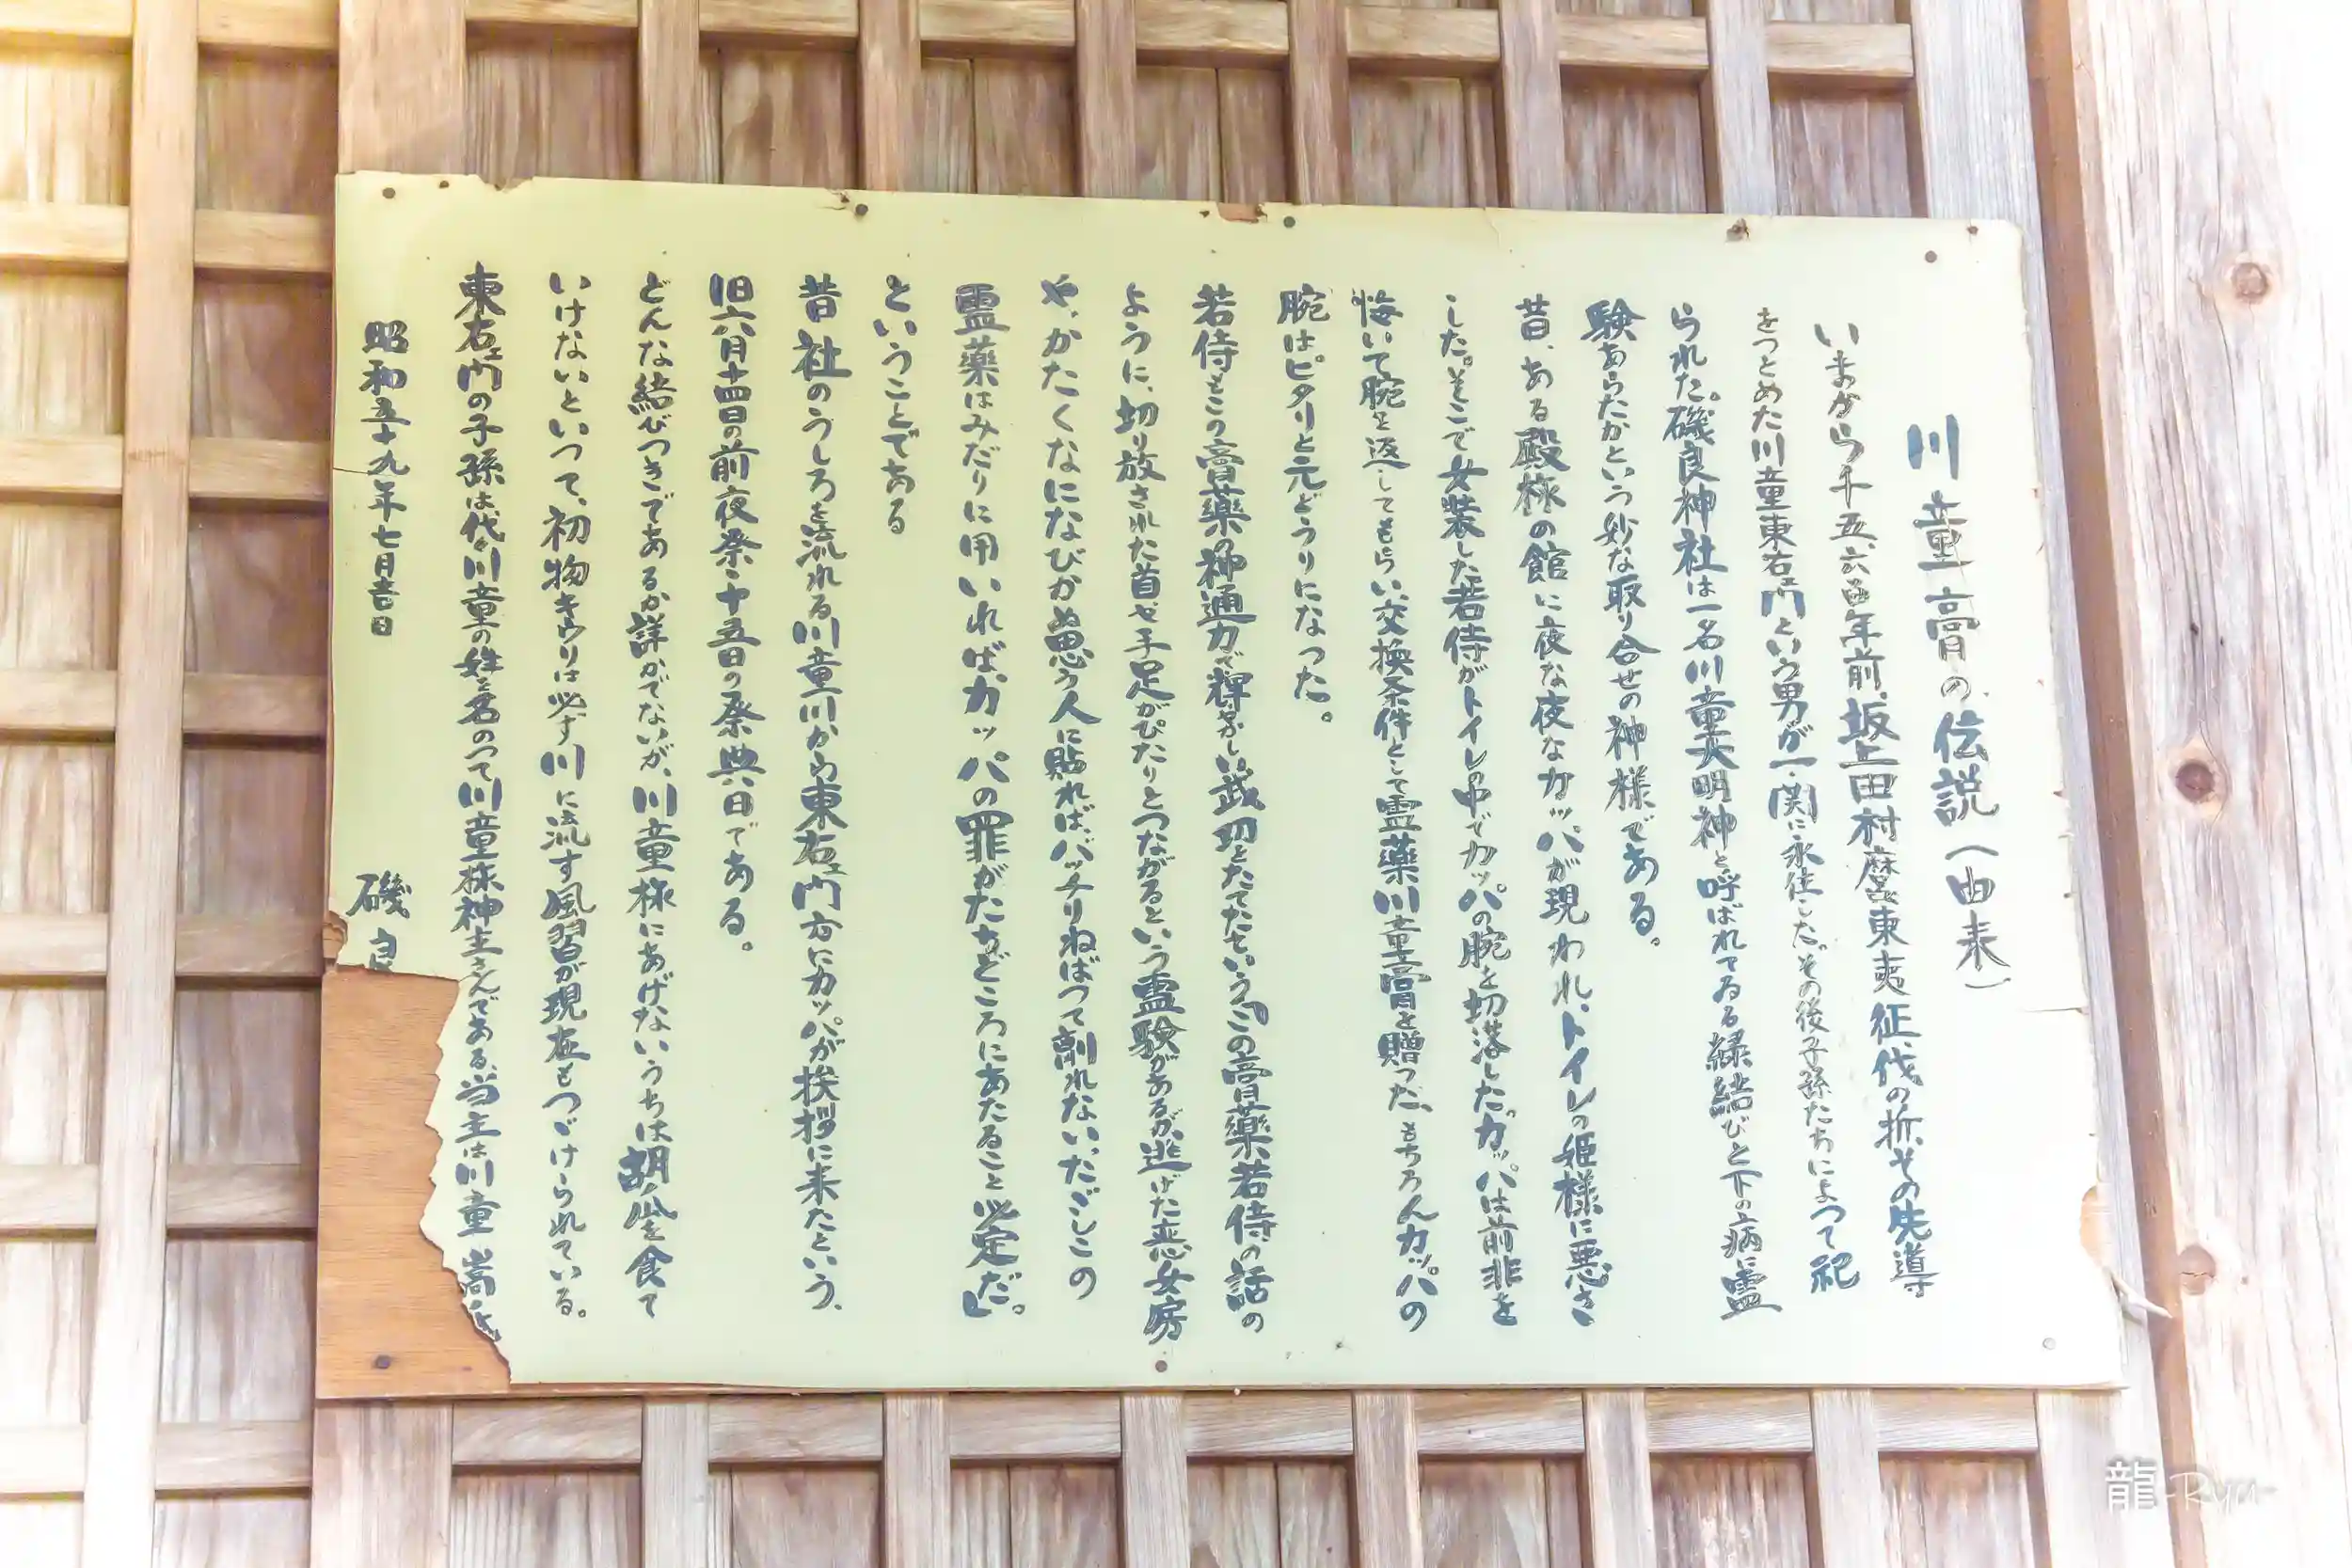 川童膏の伝説（由来）
いまから千五、六百年前、坂上田村麿東夷征伐の折、その先導
をつとめた川童東右エ門という男が一関に永住した。その後子孫たちによつて祀
られた。磯良神社は一名川童大明神と呼ばれてゐる縁結びと下の病に霊
験あらたかという妙な取り合せの神様である。
昔、ある殿様の館に夜な夜なカッパが現われ、トイレの姫様に悪さ
した。そこで女装した若侍がトイレの中でカッパの腕を切落した。カッパは前非を
悔いて腕を返してもらい、交換条件として霊薬川童膏を贈つた、もちろんカッパの
腕はピタリと元どうりになつた。
若侍もこの膏薬の神通力で輝かしい武功をたてたという「この膏薬若侍の話の
ように、切り放された首や手足がぴたりとつながるという霊験があるが逃げた恋女房
や、かたくなになびかぬ思う人に貼ればバッチリねばつて離れない、たゞしこの
霊薬はみだりに用いればカッパの罪がたちどころにあたること必定だ。」
ということである
昔社のうしろを流れる川童川から東右エ門方にカッパが挨拶に来たという、
旧六月十四日の前夜祭・十五日の祭典六日である。
どんな結びつきであるか詳かでないが、川童様にあげないうちは胡瓜を食て
いけないといつて、初物キウリは必ず川に流す風習が現在もつゞけられている。
東右エ門の子孫は代々川童の姓を名のつて川童様神主さんである、当主は川童
昭和五十九年七月吉日
磯良
龍-Ryu-